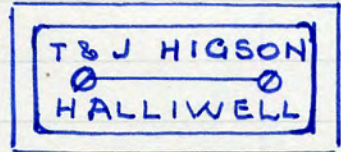 T & J HIGSON
HALLIWELL